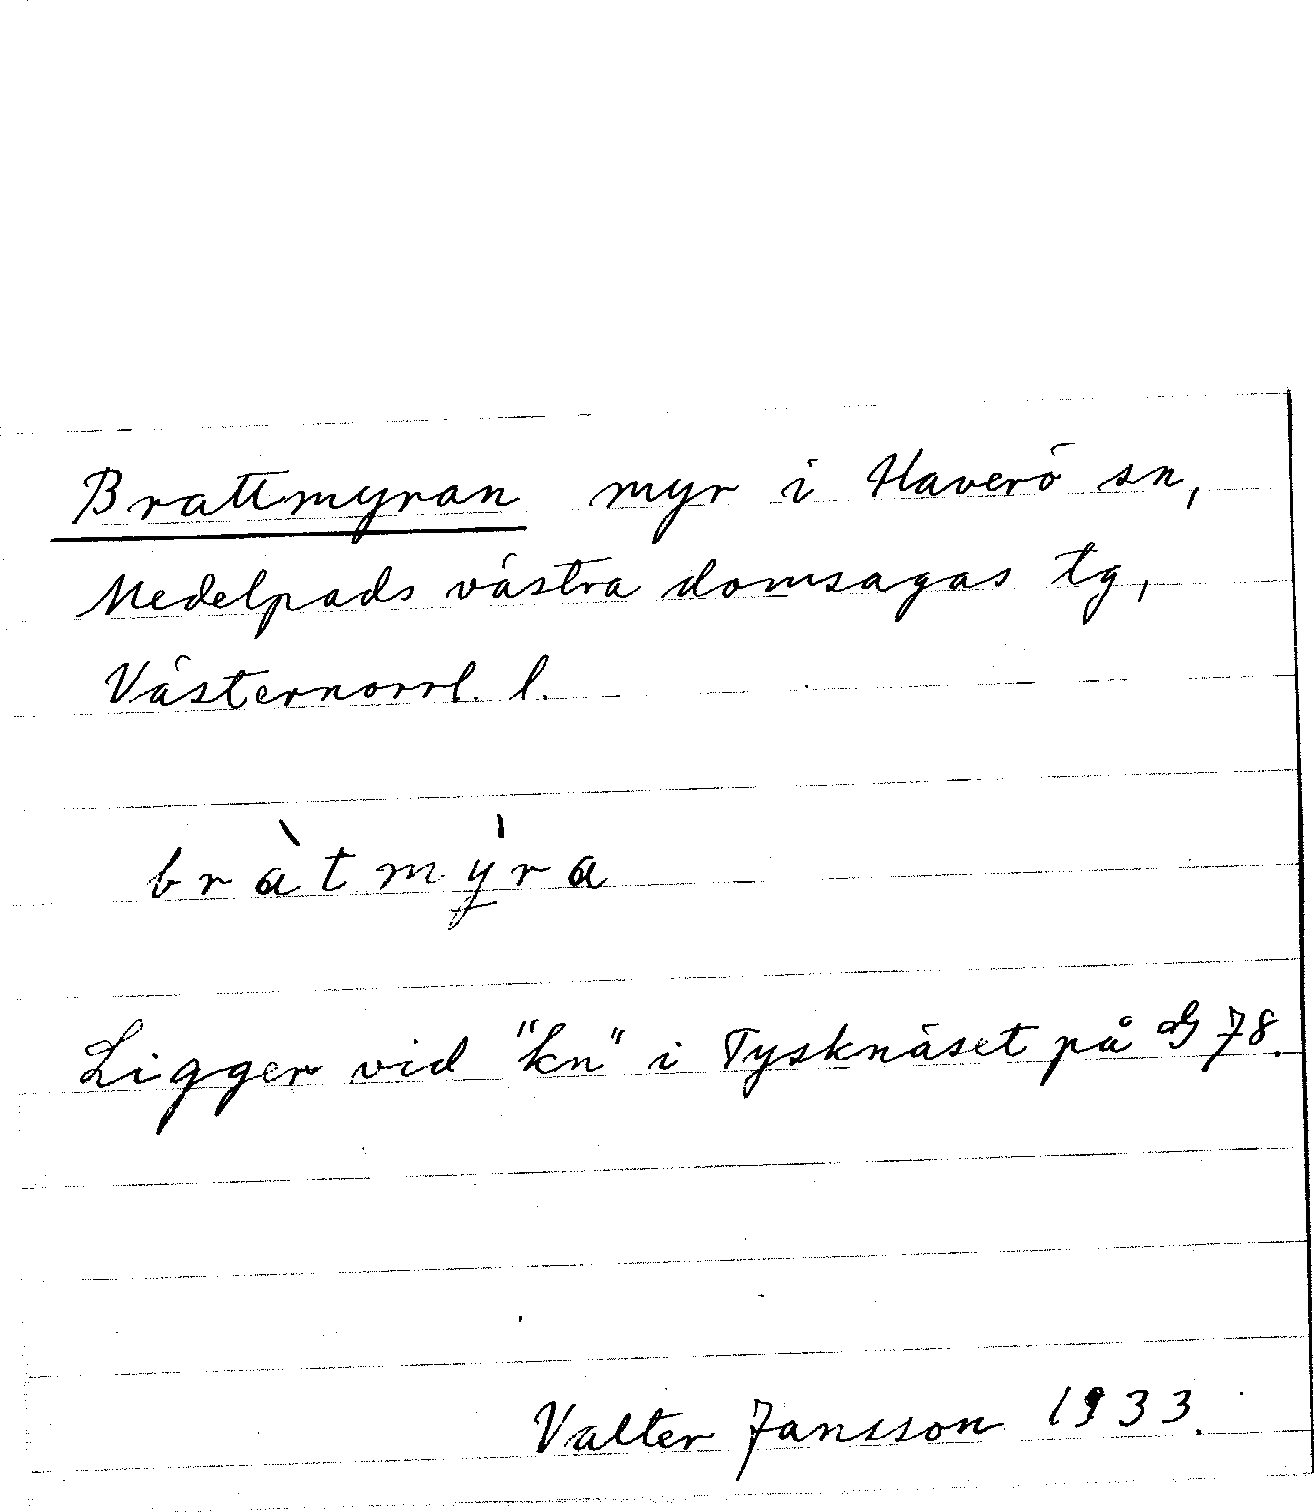 Brattmyran myr i Haverö sn,
Medelpads västra domsagas tg,
Västernorrl. l.
bràtmýra
Ligger vid "kn" i Tysknäset på G 78.
Valter Jansson 1933.